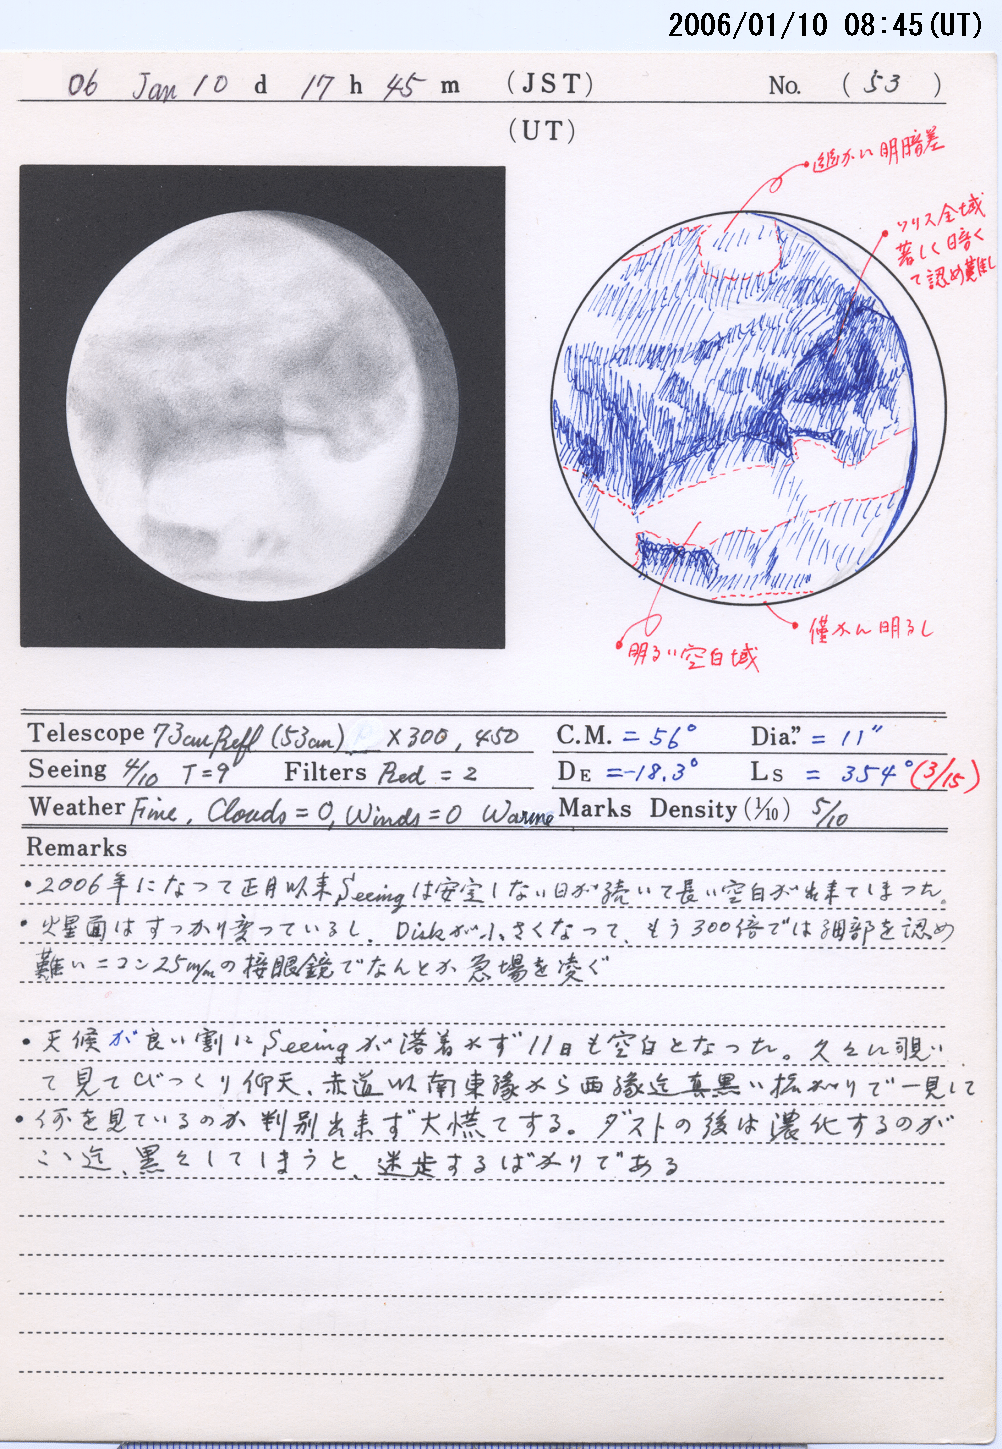 2006/01/10 08:45(UT)
06 Jan 10 d 17 h 45 m (JST) No. (53)
(UT)
僅かに明暗差
ソリス全域
著しく暗く
て認め難し
僅かに明るし
明るい空白域
Telescope 73cm Refl (53cm) ×300, 450 C.M. = 56° Dia." = 11"
Seeing 4/10 T=9° Filters Red = 2 DE = -18.3° Ls = 354° (3/15)
Weather Fine, Clouds = 0, Winds = 0 Warme Marks Density (1/10) 5/10
Remarks
・2006年になって正月以来Seeingは安定しない日が続いて長い空白が出来てしまった。
・火星面はすっかり変っているし、Diskが小さくなって、もう300倍では細部を認め
難いニコン25m/mの接眼鏡でなんとか急場を凌ぐ
・天候が良い割にSeeingが落着かず11日も空白となった。久々に覗い
て見てびっくり仰天、赤道以南東縁から西縁迄真黒い拡がりで一見して
・何を見ているのか判別出来ず大慌てする。ダストの後は濃化するのが
こゝ迄、黒々してしまうと、迷走するばかりである